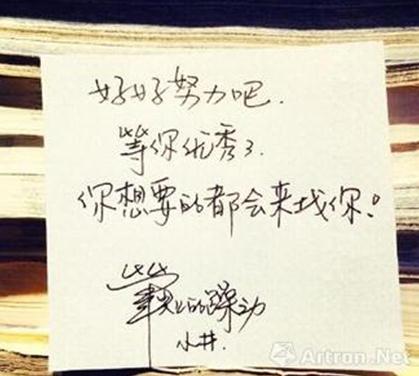 好好努力吧.
等你优秀了.
你想要的都会来找你!
草业的躁动
小井.
Artron.Net